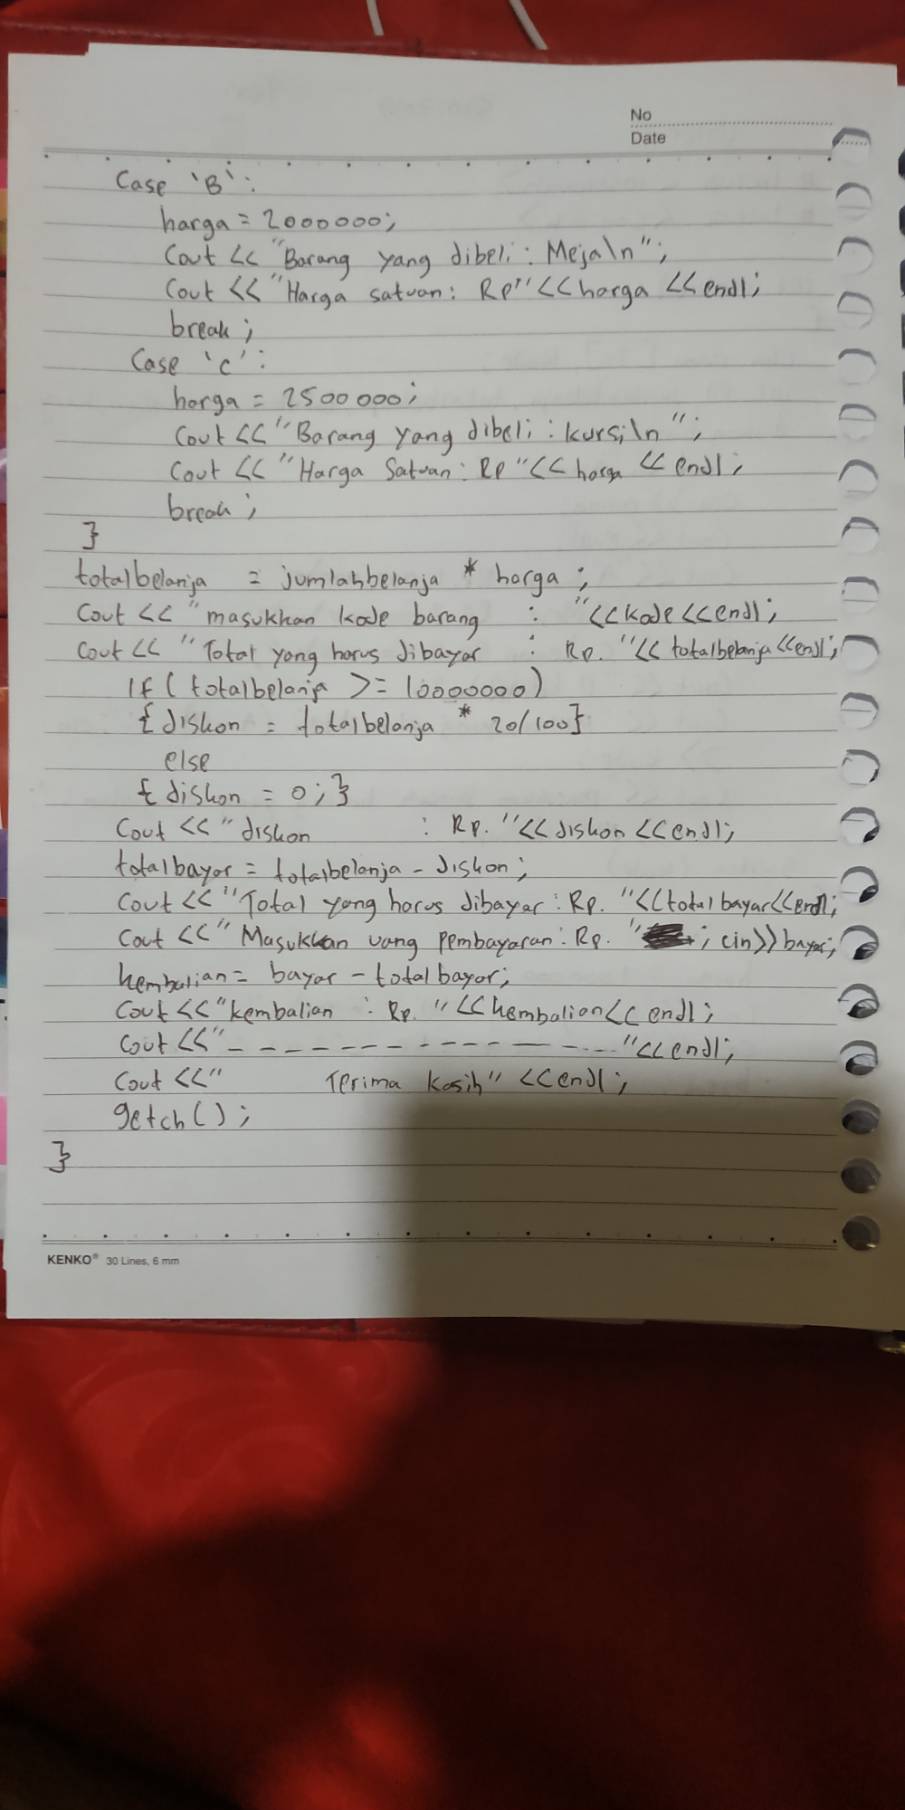 No
Date
Case 'B':
harga = 2000000;
Cout << "Barang yang dibeli : Meja\n";
Cout << "Harga satuan: Rp" << harga << endl;
break;
Case 'c':
harga = 2500000;
Cout << "Barang yang dibeli : kursi\n";
Cout << "Harga Satuan: Rp" << harga << endl;
break;
}
totalbelanja = jumlahbelanja * harga;
Cout << "masukhan kode barang : "<<kode<<endl;
Cout << "Total yang harus dibayar : Rp. "<< totalbelanja<<endl;
If (totalbelanja >= 10000000)
{diskon = totalbelanja * 20/100}
else
{diskon = 0;}
Cout << "diskon : Rp. "<<diskon<<endl;
totalbayar = totalbelanja - diskon;
Cout <<"Total yang harus dibayar: Rp. "<<total bayar<<endl;
Cout <<" Masukkan uang pembayaran: Rp. "; cin>>bayar;
kembalian = bayar - total bayar;
Cout <<"kembalian : Rp. "<<kembalian<< endl;
Cout <<"- - - - - - - - - - - - - - - - - -"<<endl;
Cout <<" Terima kasih" <<endl;
getch();
}
KENKO® 30 Lines, 6 mm